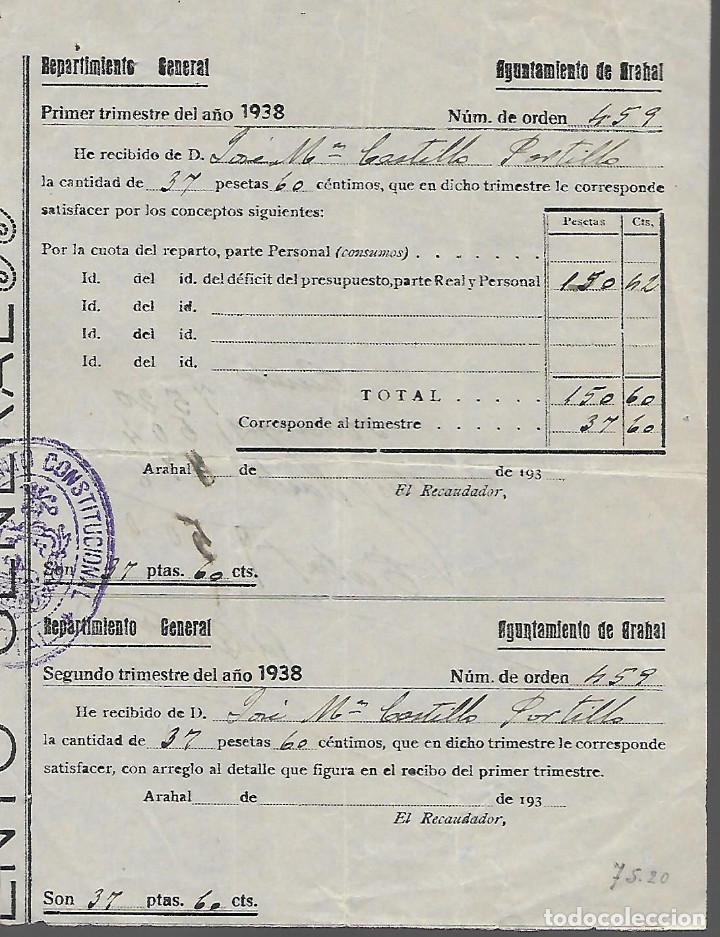 Repartimiento General Ayuntamiento de Arahal
Primer trimestre del año 1938 Núm. de orden 459
He recibido de D. José Mª Castillo Portillo
la cantidad de 37 pesetas 60 céntimos, que en dicho trimestre le corresponde
satisfacer por los conceptos siguientes:
Pesetas Cts.
Por la cuota del reparto, parte Personal (consumos)
Id. del id. del déficit del presupuesto, parte Real y Personal 150 42
Id. del id.
Id. del id.
Id. del id.
TOTAL 150 60
Corresponde al trimestre 37 60
Arahal de de 193
El Recaudador,
CONSTITUCIONAL
Son 37 ptas. 60 cts.
Repartimiento General Ayuntamiento de Arahal
Segundo trimestre del año 1938 Núm. de orden 459
He recibido de D. José Mª Castillo Portillo
la cantidad de 37 pesetas 60 céntimos, que en dicho trimestre le corresponde
satisfacer, con arreglo al detalle que figura en el recibo del primer trimestre.
Arahal de de 193
El Recaudador,
75.20
Son 37 ptas. 60 cts.
todocoleccion